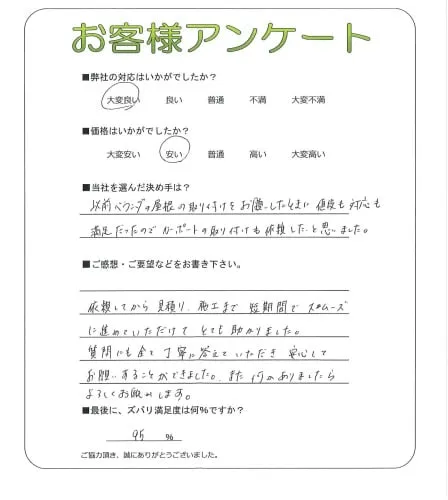 お客様アンケート
■弊社の対応はいかがでしたか？
大変良い 良い 普通 不満 大変不満
■価格はいかがでしたか？
大変安い 安い 普通 高い 大変高い
■当社を選んだ決め手は？
以前ベランダの屋根の取り付けをお願いしたときに 値段も対応も
満足だったのでカーポートの取り付けも依頼したいと思いました。
■ご感想・ご要望などをお書き下さい。
依頼してから 見積り、施工まで 短期間で スムーズ
に進めていただけて とても助かりました。
質問にも全て丁寧に答えていただき 安心して
お願いすることができました。また何かありましたら
よろしくお願いします。
■最後に、ズバリ満足度は何%ですか？
95 %
ご協力頂き、誠にありがとうございました。